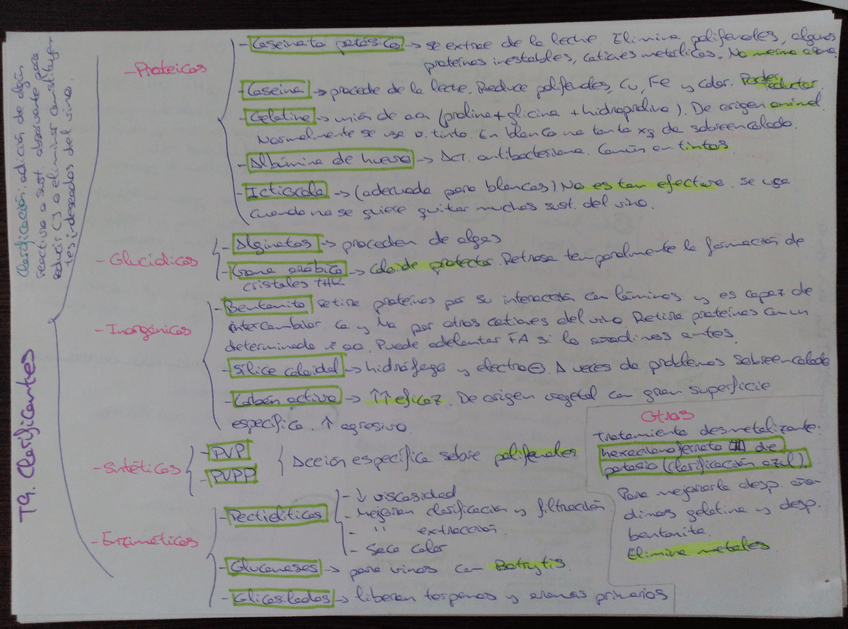 T9. Clarificantes
Clarificación: adición de algún
reactivo o sust. absorvente para
reducir [] o eliminar constituyen
tes indeseados del vino.
- Proteicos
- Caseinato potásico → se extrae de la leche Elimina polifenoles, algunas
proteínas inestables, cationes metálicos. No merma aroma
- Caseína → procede de la leche. Reduce polifenoles, Cu, Fe y color. Poder reductor.
- Gelatina → unión de aa (prolina + glicina + hidroprolina). De origen animal
Normalmente se usa v. tinto. En blanco no tanto xq da sobreencolado.
- Albúmina de huevo → Act. antibacteriana. Común en tintos
- Ictiocola → (adecuada para blancos) No es tan efectiva. Se usa
cuando no se quiere quitar muchas sust. del vino.
- Glucídicos
- Alginatos → proceden de algas
- Goma arábica → coloide protector. Retrasa temporalmente la formación de
cristales THK.
- Inorgánicos
- Bentonita retira proteínas por su interacción con láminas y es capaz de
intercambiar Ca y Na por otros cationes del vino Retira proteínas con un
determinado aa. Puede adelantar FA si la añadimos antes.
- Sílice coloidal → hidrófago y electro⊖. A veces da problemas sobreencolado
- Carbón activo → ↑↑ eficaz. De origen vegetal con gran superficie
específica. ↑ agresivo
- Sintéticos
- PVP
- PVPP
Acción específica sobre polifenoles
- Enzimáticos
- Pectolíticas
- ↓ viscosidad
- Mejoran clarificación y filtración
- " extracción
- Saca color
- Glucanasas → para vinos con Botrytis.
- Glicosidadas → liberan terpenos y aromas primarios
Otros
Tratamiento desmetalizante.
hexacianoferrato de
potasio (clarificación azul).
Para mejorarla desp. aña
dimos gelatina y desp.
bentonita.
Elimina metales.